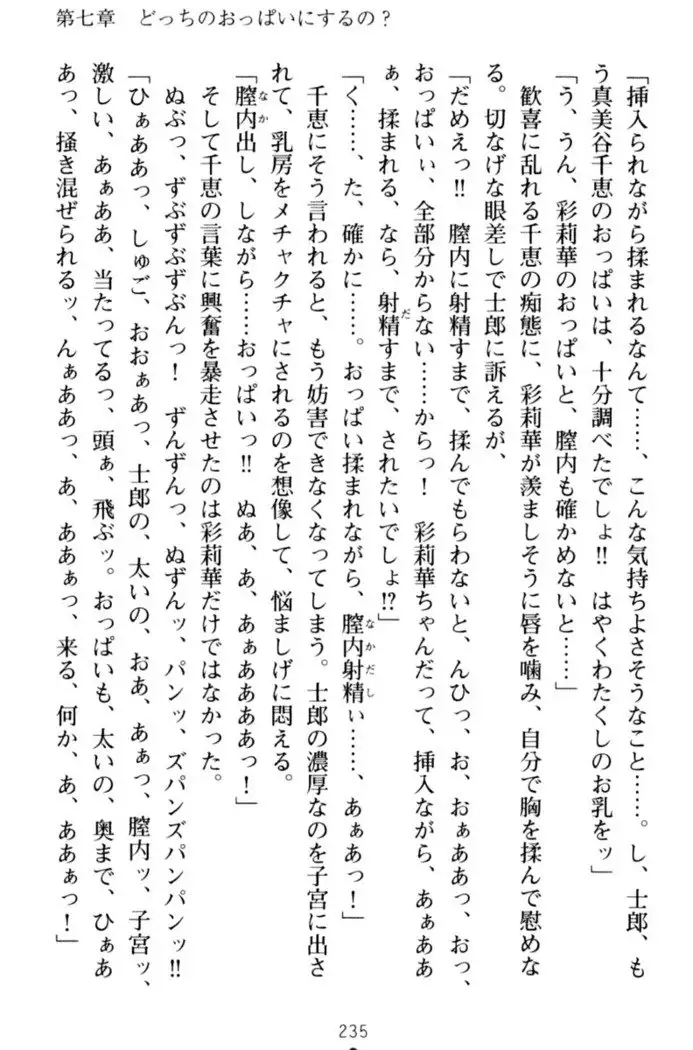 第七章　どっちのおっぱいにするの？
「挿入られながら揉まれるなんて……、こんな気持ちよさそうなこと……。し、士郎、も
う真美谷千恵のおっぱいは、十分調べたでしょ!!　はやくわたくしのお乳をッ」
「う、うん、彩莉華のおっぱいと、膣内も確かめないと……」
歓喜に乱れる千恵の痴態に、彩莉華が羨ましそうに唇を噛み、自分で胸を揉んで慰めな
る。切なげな眼差しで士郎に訴えるが、
「だめえっ!!　膣内に射精すまで、揉んでもらわないと、んひっ、お、おぁああっ、おっ、
おっぱいぃ、全部分からない……からっ！　彩莉華ちゃんだって、挿入ながら、あぁああ
ぁ、揉まれる、なら、射精すまで、されたいでしょ!?」
「く……、た、確かに……。おっぱい揉まれながら、膣内射精ぃ……、あぁあっ！」
千恵にそう言われると、もう妨害できなくなってしまう。士郎の濃厚なのを子宮に出さ
れて、乳房をメチャクチャにされるのを想像して、悩ましげに悶える。
「膣内出し、しながら……おっぱいっ!!　ぬあ、あ、あぁああああっ！」
そして千恵の言葉に興奮を暴走させたのは彩莉華だけではなかった。
ぬぶっ、ずぶずぶずぶんっ！　ずんずんっ、ぬずんッ、パンッ、ズパンズパンパンッ!!
「ひぁああっ、しゅご、おおぁあっ、士郎の、太いの、おあ、あぁっ、膣内ッ、子宮ッ、
激しい、あぁああ、当たってるっ、頭ぁ、飛ぶッ。おっぱいも、太いの、奥まで、ひぁあ
あっ、掻き混ぜられるッ、んぁああっ、あ、ああぁっ、来る、何か、あ、ああぁっ！」
235